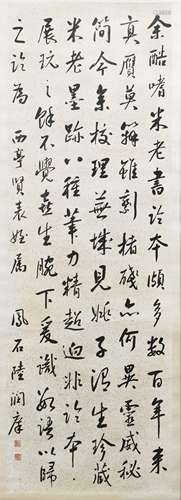 余酷嗜米老書論本頗多數百年来
真贋莫辨雖剝楮殘點何異靈威秘
簡今余校理蕪城見姚子渭生珍藏
米老墨跡八種筆力精超迥非論本
展玩之餘不覺喜生腕下爰識數語以歸
之 為 賢表姪屬 鳳石陸潤庠